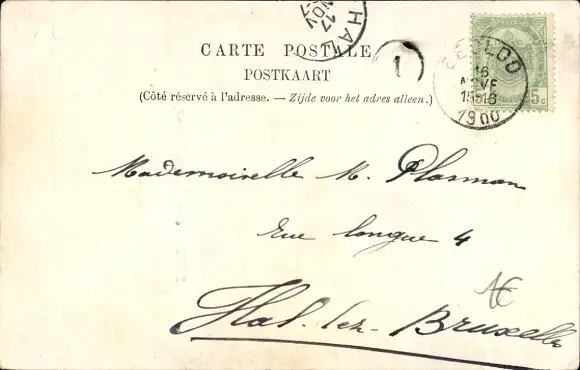 CARTE POSTALE
POSTKAART
(Côté réservé à l'adresse. — Zijde voor het adres alleen.)
HAL
17
NOV
1
EECLOO
16
NOVE
1900
5c
Mademoiselle M. Plasman
Rue longue 4
Hal. lez-Bruxelles